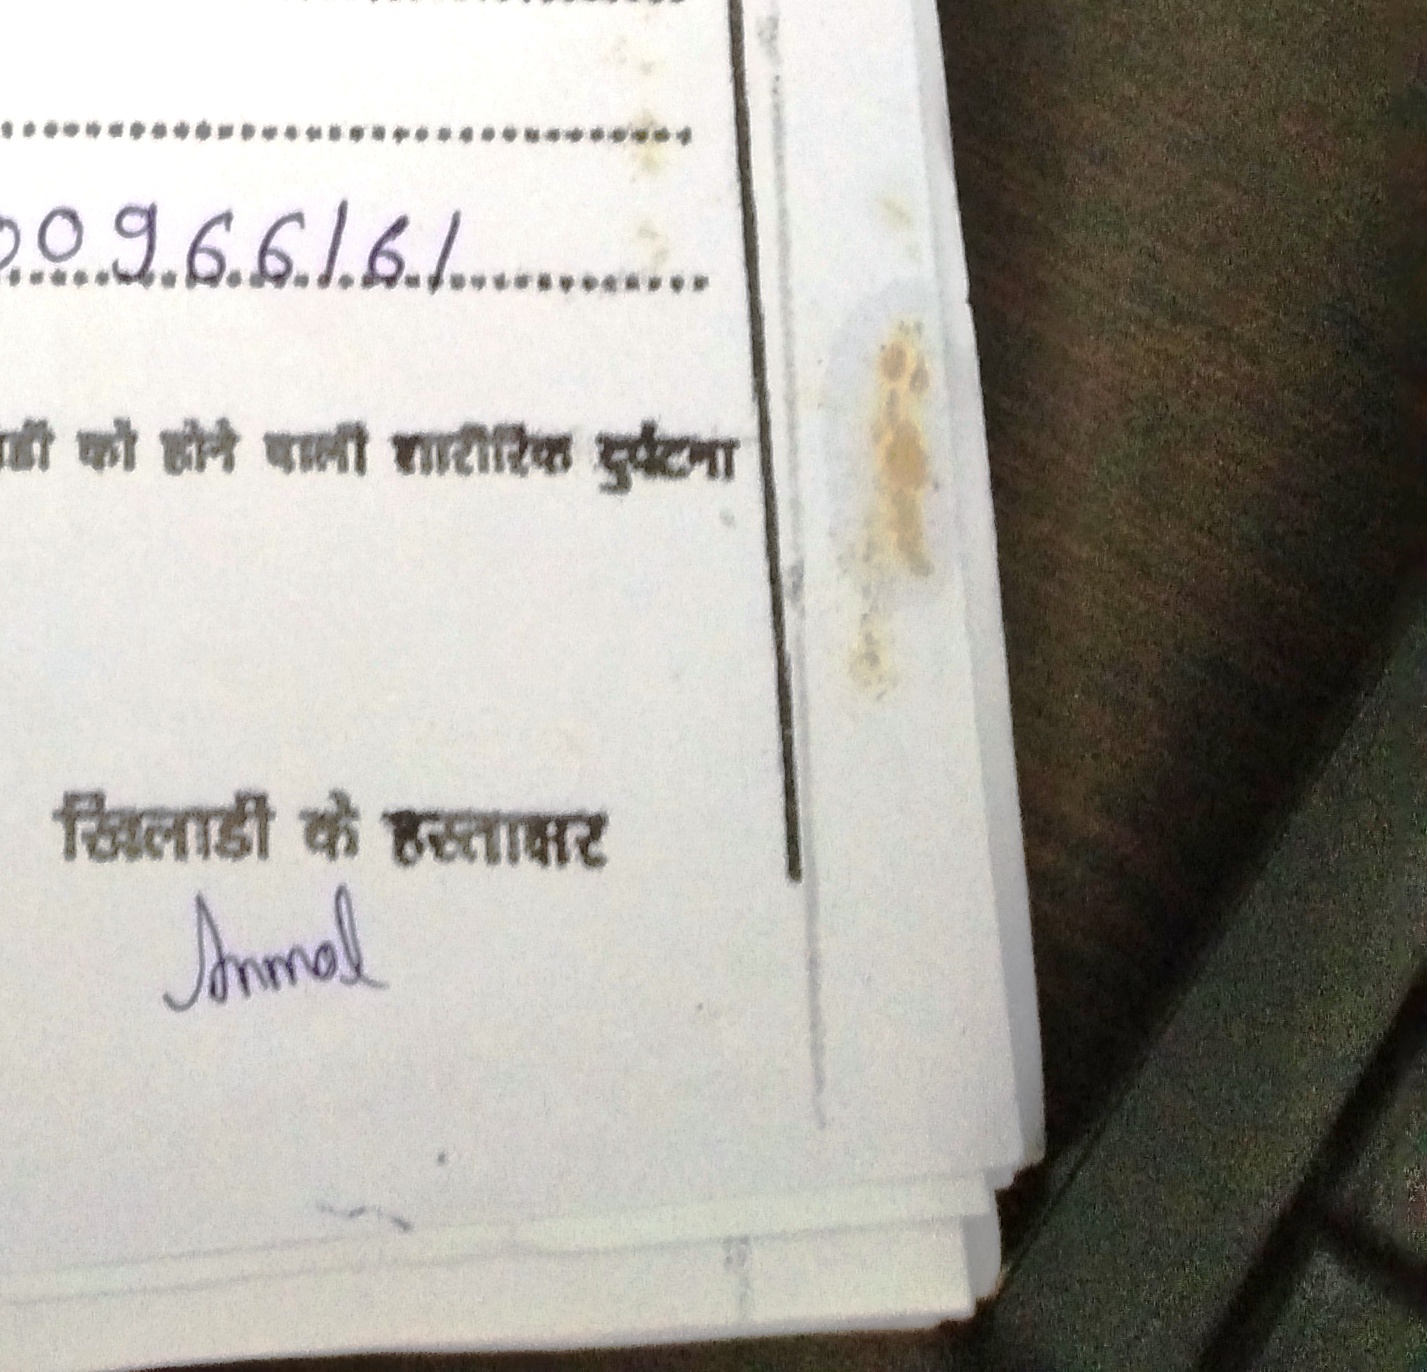 00966161
को होने वाली शारीरिक दुर्घटना
खिलाडी के हस्ताक्षर
Anmol